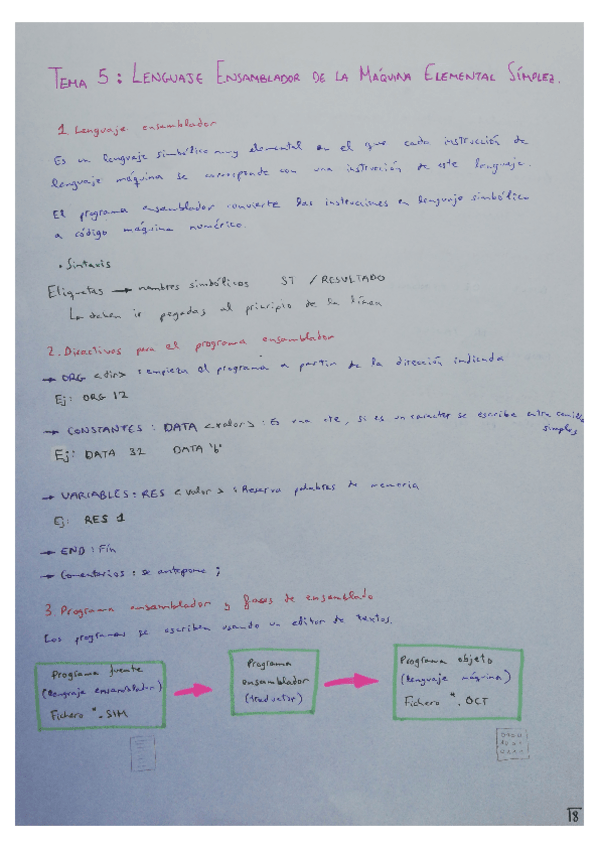 TEMA 5: LENGUAJE ENSAMBLADOR DE LA MÁQUINA ELEMENTAL SÍMPLEZ.
1 Lenguaje ensamblador
Es un lenguaje simbólico muy elemental en el que cada instrucción de
lenguaje máquina se corresponde con una instrucción de este lenguaje.
El programa ensamblador convierte las instrucciones en lenguaje simbólico
a código máquina numérico.
• Sintaxis
Etiquetas → nombres simbólicos ST /RESULTADO
↳ deben ir pegadas al principio de la línea
2. Directivas para el programa ensamblador
→ ORG <dir> : empieza el programa a partir de la dirección indicada
Ej: ORG 12
→ CONSTANTES : DATA <valor> : Es una cte, si es un caracter se escribe entre comillas
simples
Ej: DATA 32 DATA 'b'
→ VARIABLES: RES <valor> : Reserva palabras de memoria
Ej: RES 1
→ END : Fin
→ Comentarios : se antepone ;
3 Programa ensamblador y fases de ensamblado
Los programas se escriben usando un editor de textos.
Programa fuente
(lenguaje ensamblador)
Fichero *.SIM
Programa
ensamblador
(traductor)
Programa objeto
(lenguaje máquina)
Fichero *.OCT
18